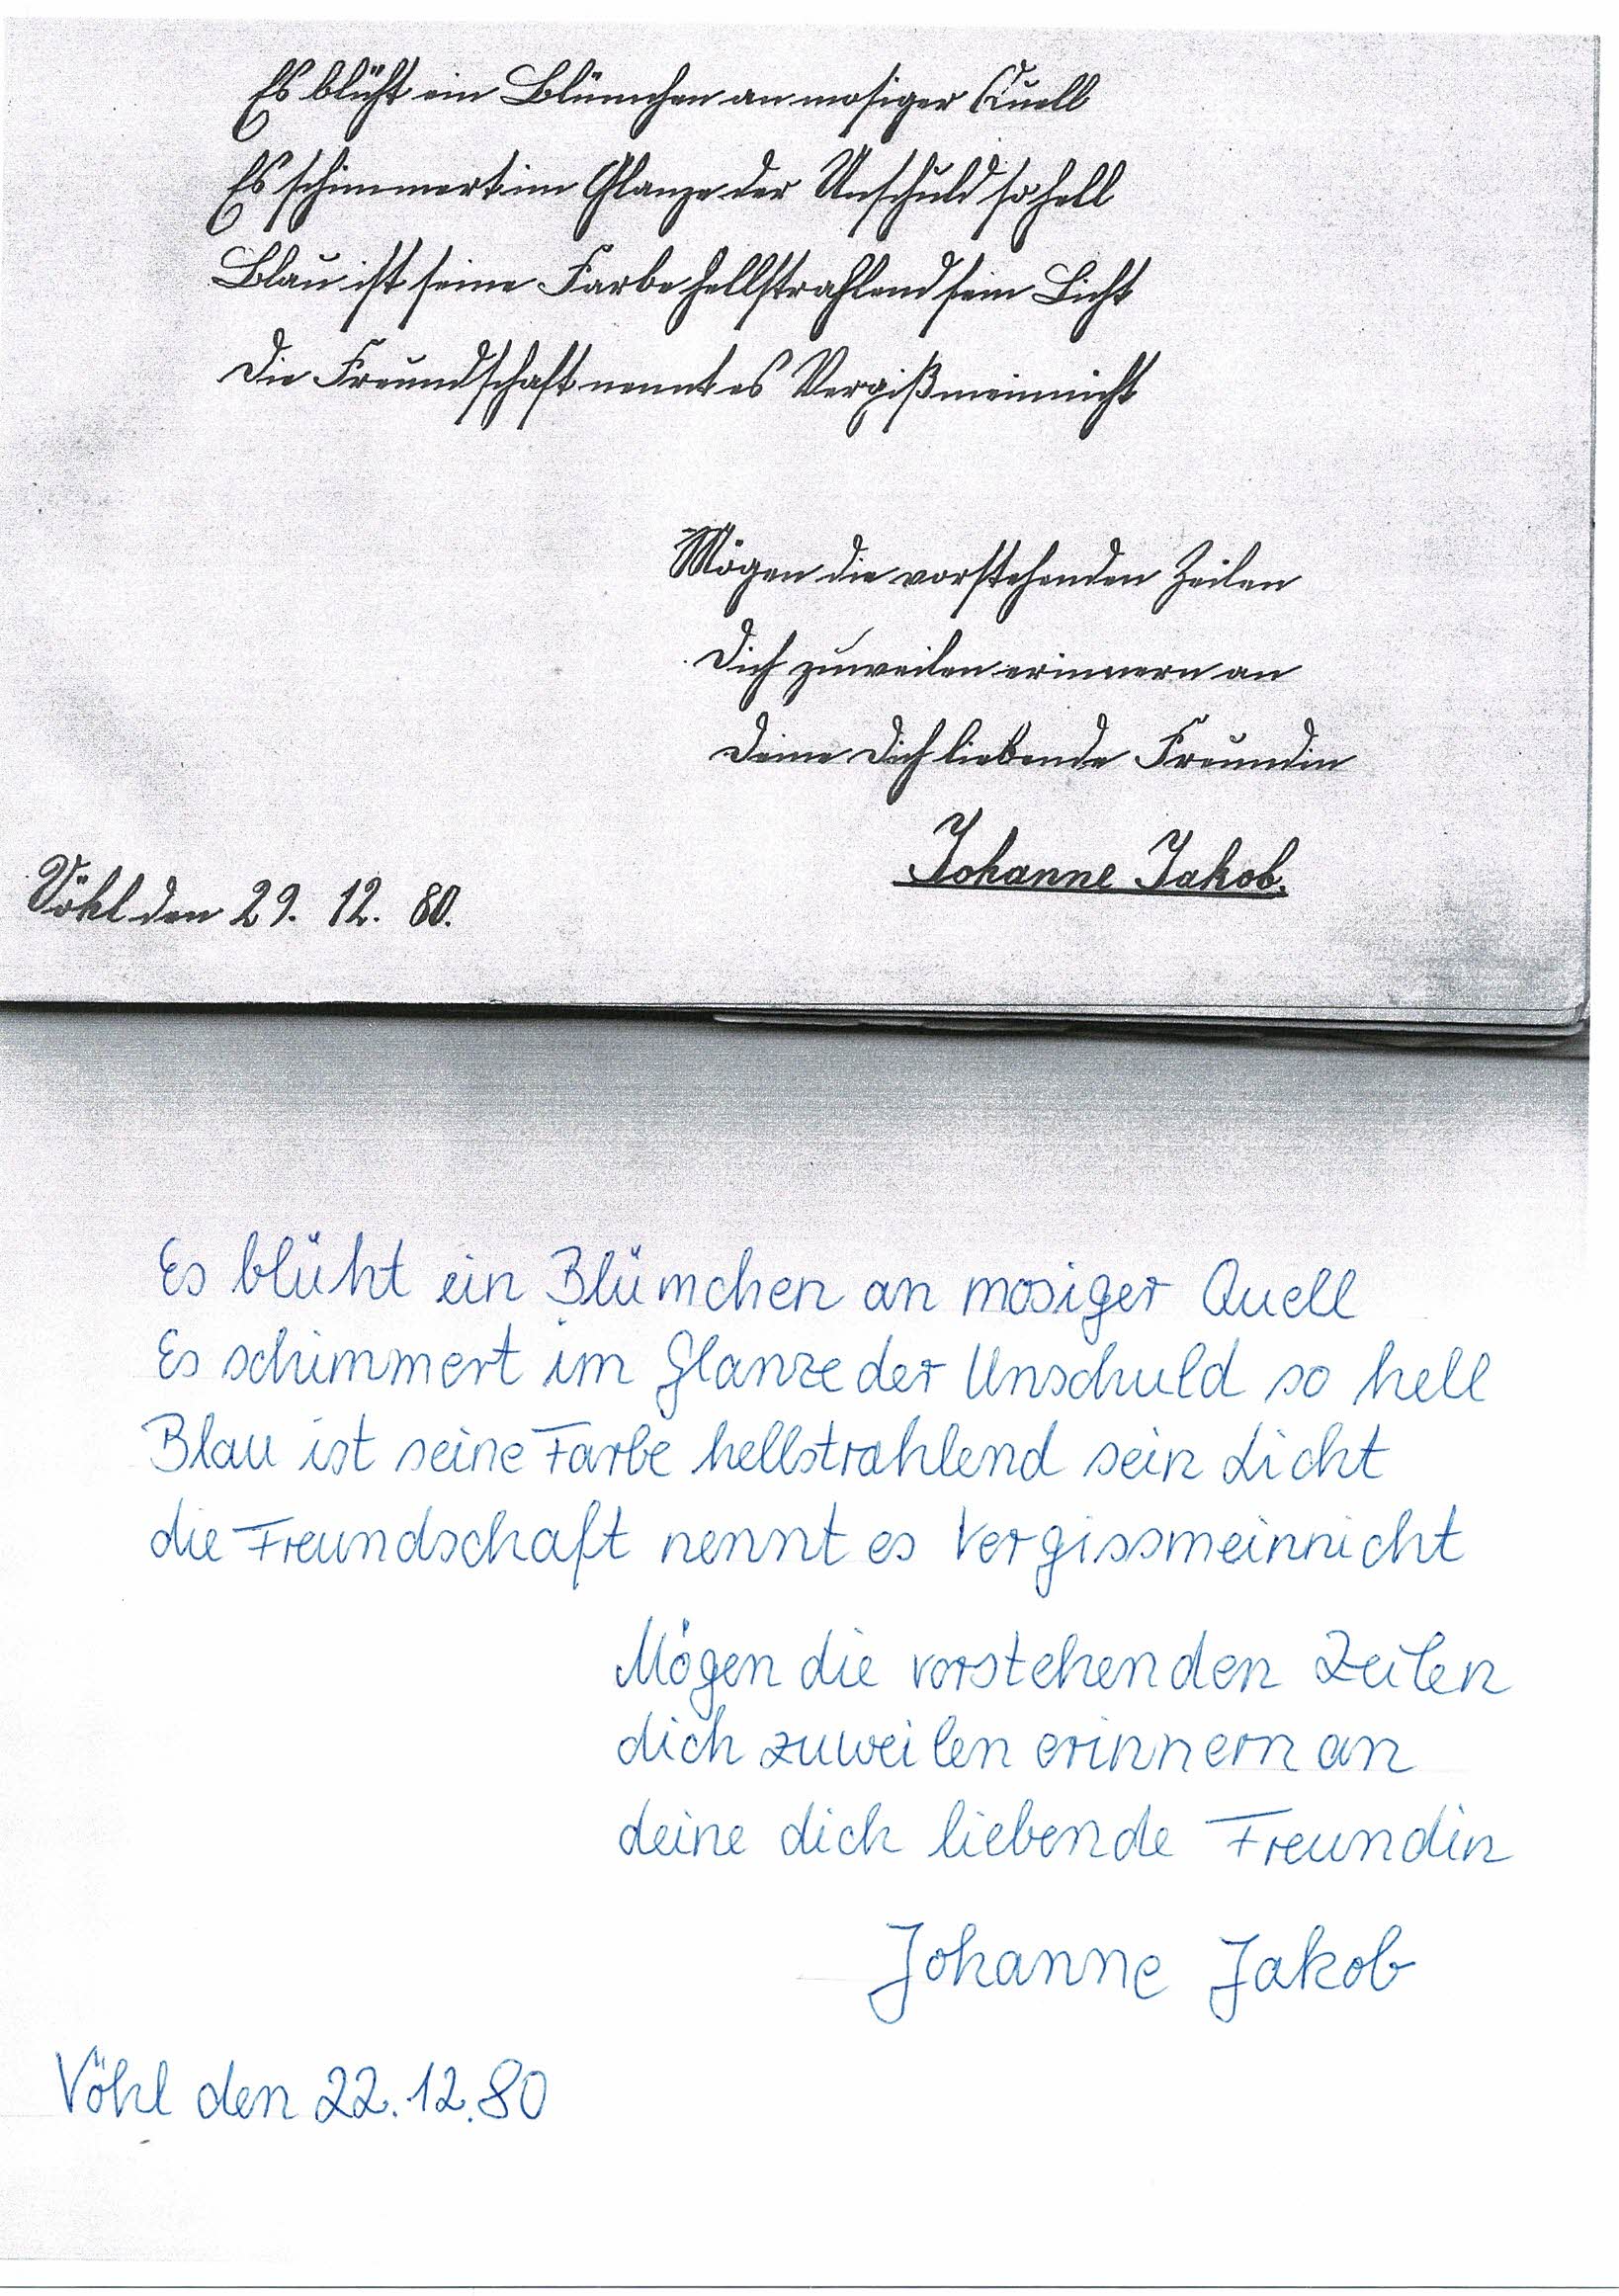 Es blüht ein Blümchen an mosiger Quell
Es schimmert im Glanze der Unschuld so hell
Blau ist seine Farbe hellstrahlend sein Licht
Die Freundschaft nennt es Vergißmeinnicht
Mögen die vorstehenden Zeilen
Dich zuweilen erinnern an
Deine Dich liebende Freundin
Johanne Jakob.
Vöhl den 29. 12. 80.
Es blüht ein Blümchen an mosiger Quell
Es schimmert im Glanze der Unschuld so hell
Blau ist seine Farbe hellstrahlend sein Licht
die Freundschaft nennt es Vergissmeinnicht
Mögen die vorstehenden Zeilen
dich zuweilen erinnern an
deine dich liebende Freundin
Johanne Jakob
Vöhl den 22.12.80